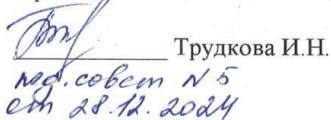 Трудкова И.Н.
пед. совет N 5
от 28.12.2024